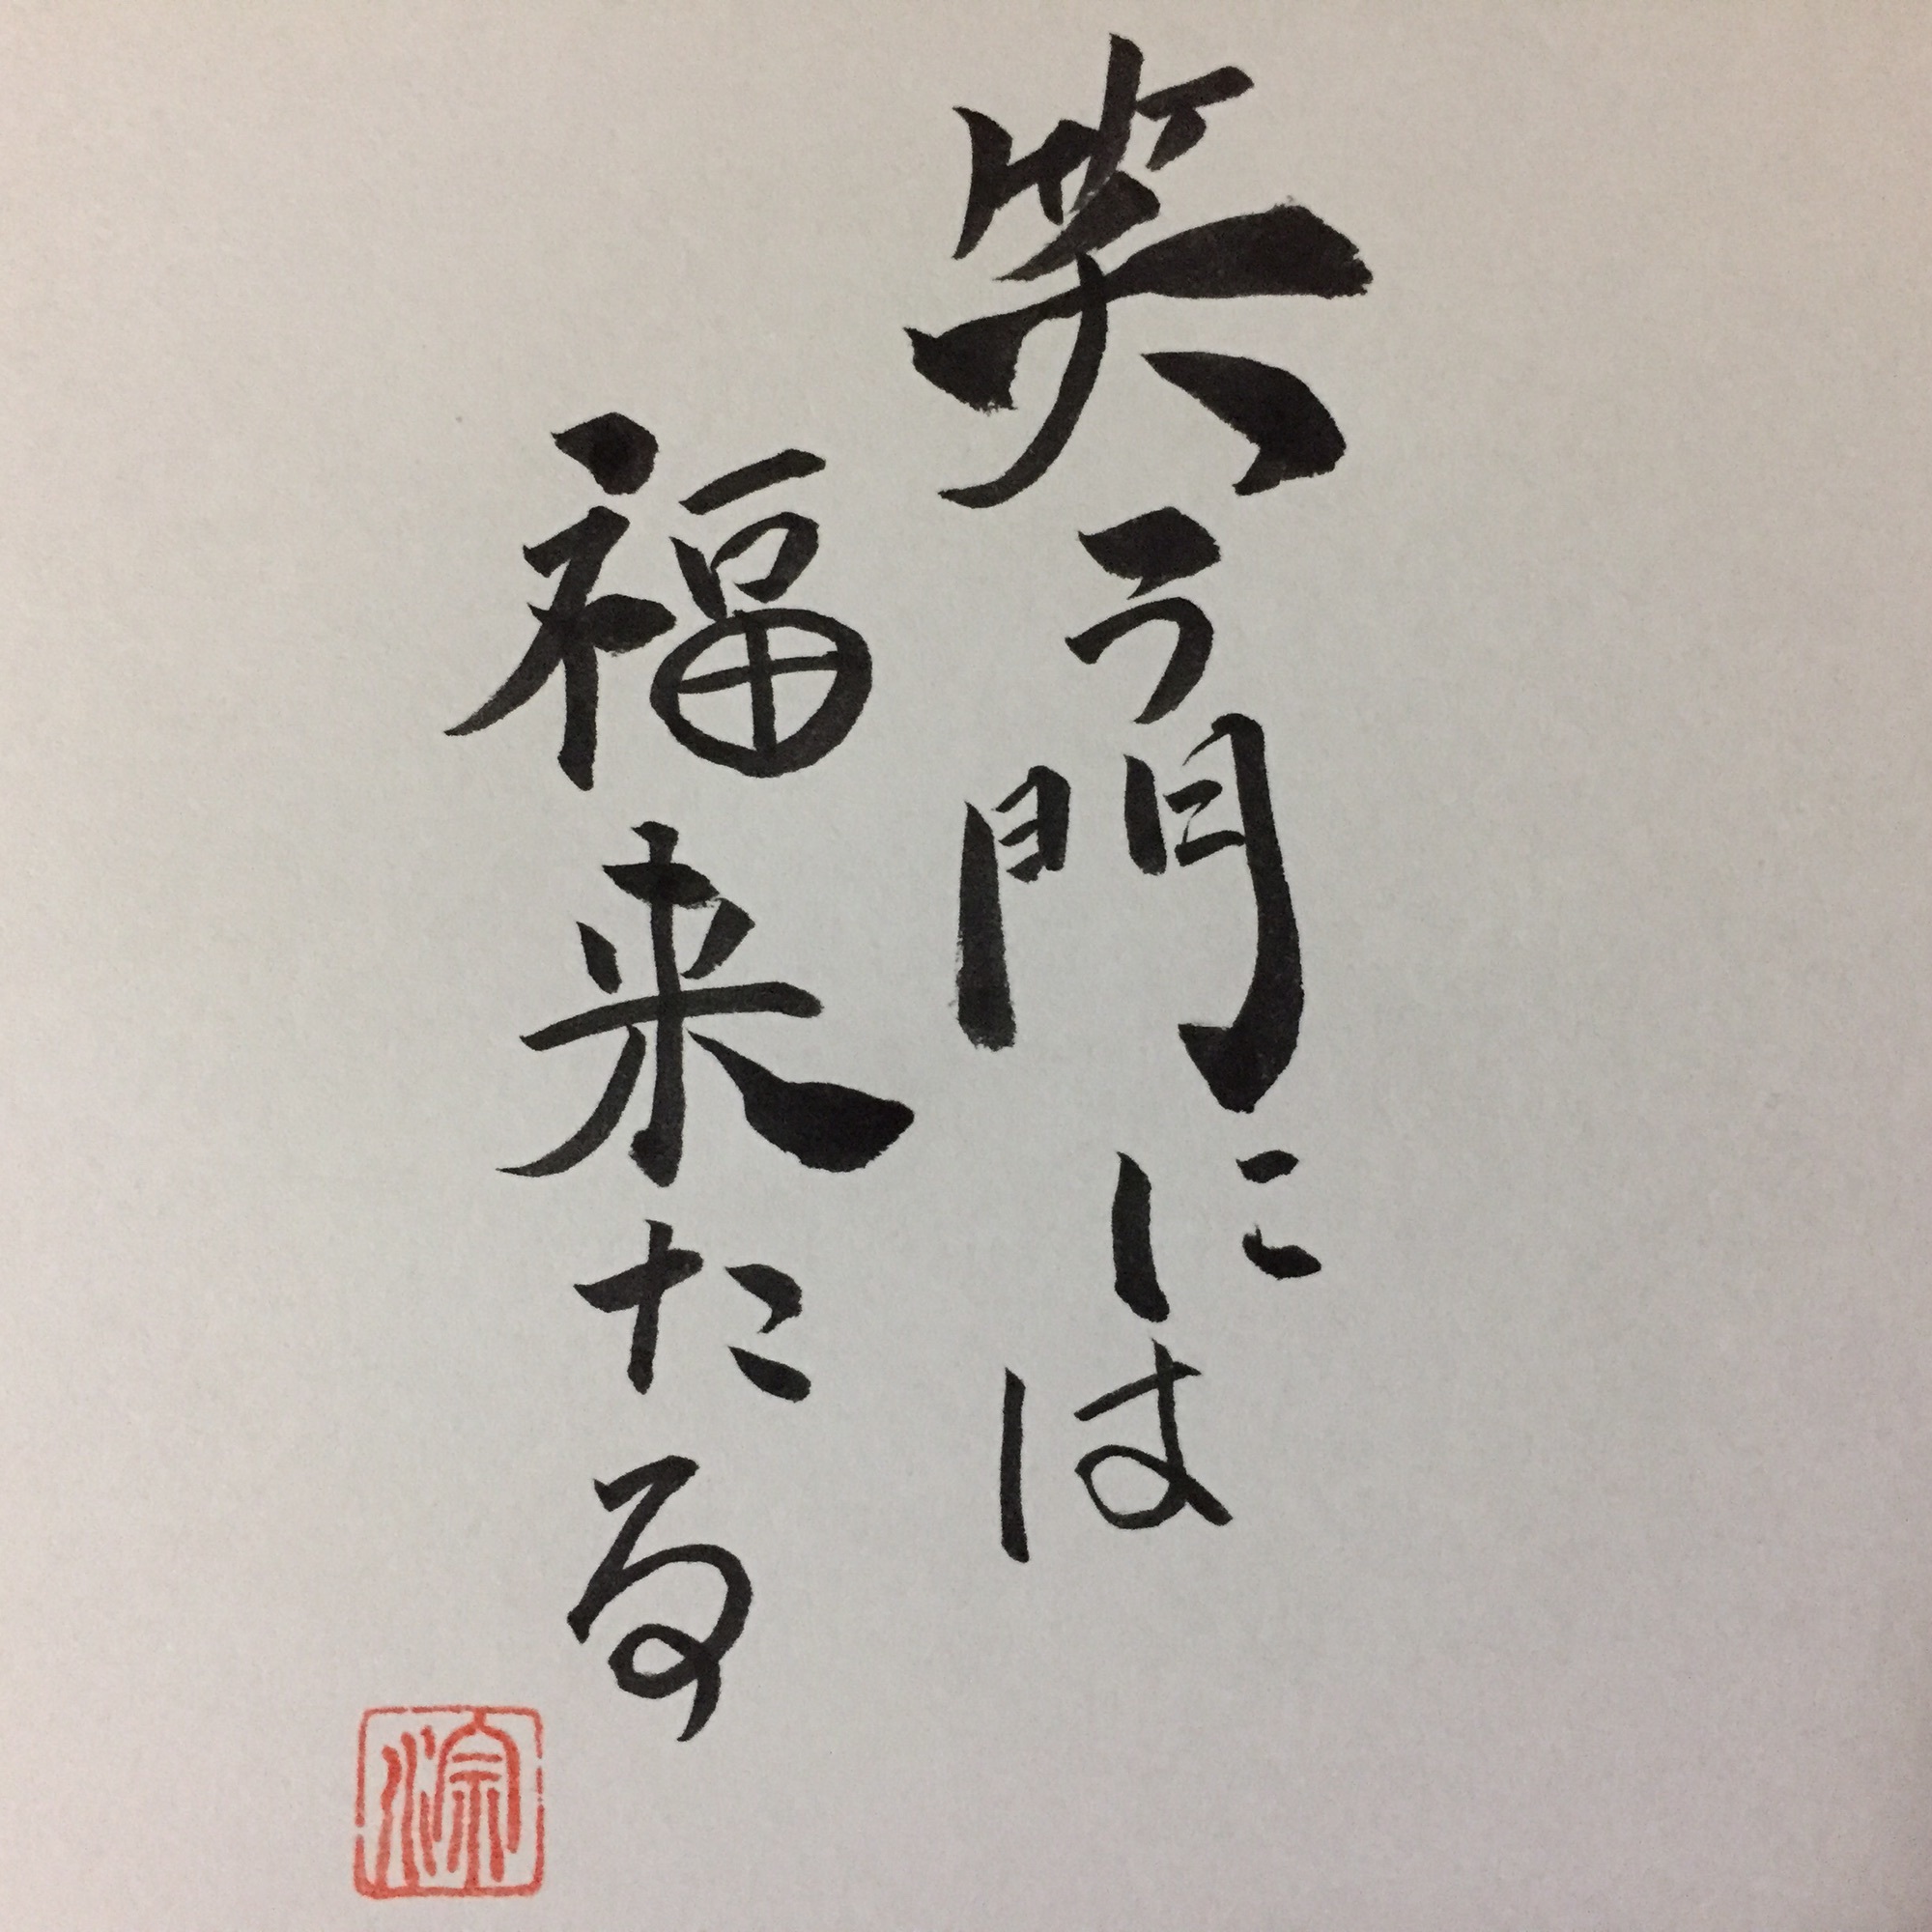 笑う門には
福来たる
淙